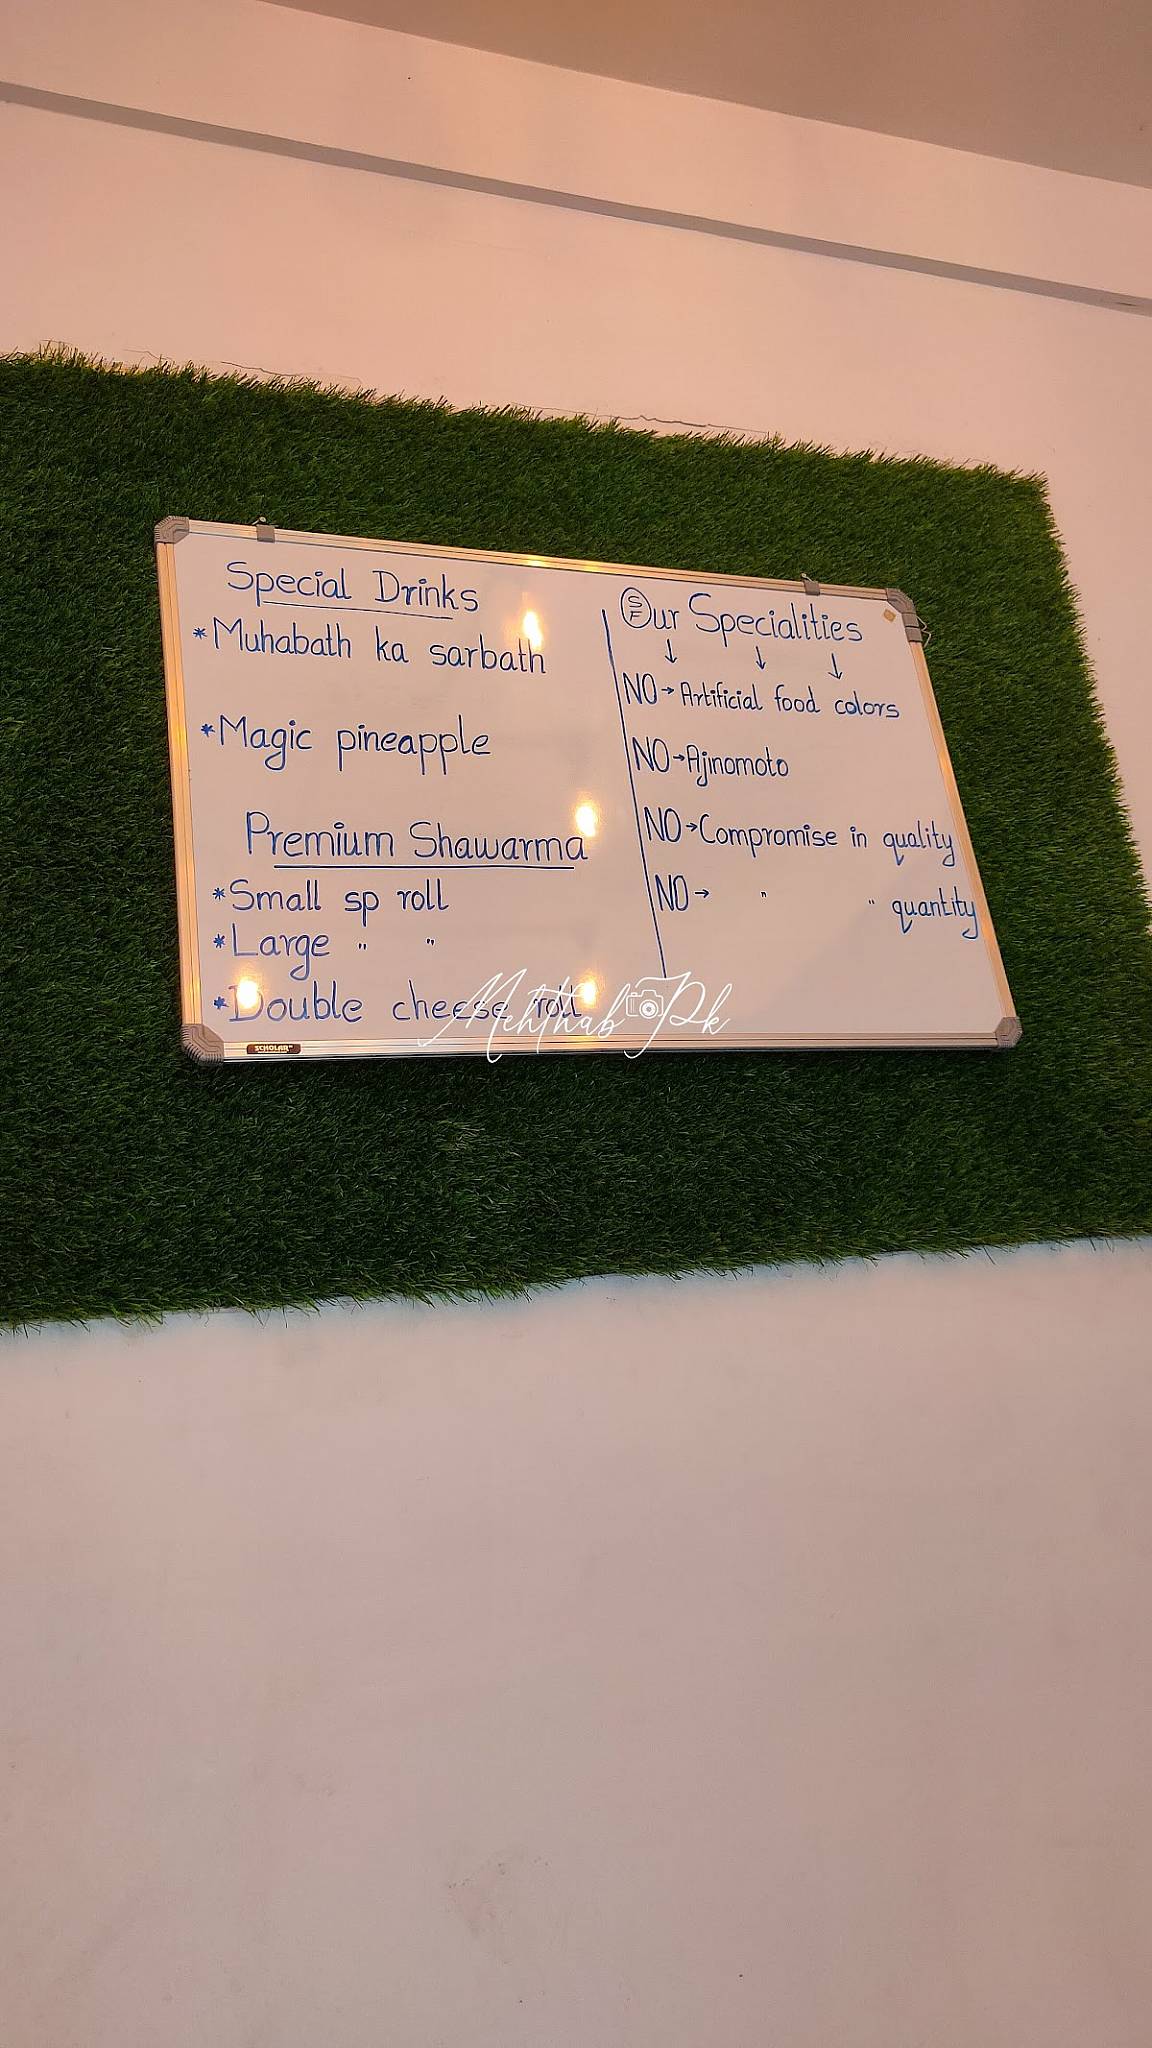 Special Drinks
*Muhabath ka sarbath
*Magic pineapple
Premium Shawarma
*Small sp roll
*Large " "
*Double cheese roll
SF
Our Specialities
↓ ↓ ↓
NO→Artificial food colors
NO→Ajinomoto
NO→Compromise in quality
NO→ " " quantity
Mehthab Pk
SCHOLAR